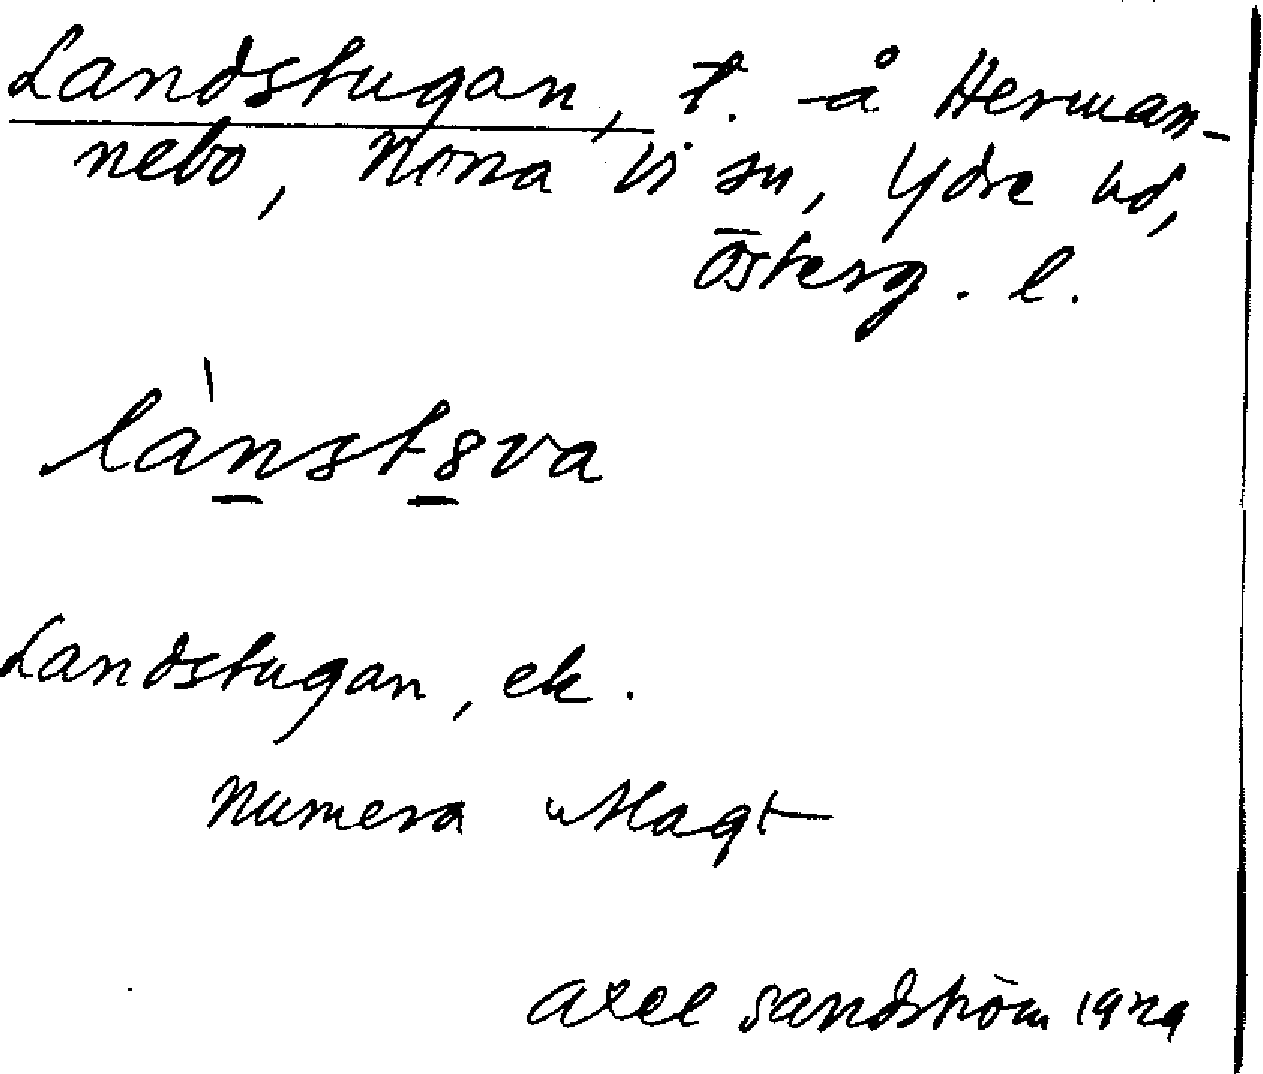 Landstugan, t. å Herman-
nebo, Norra Vi sn, Ydre hd,
Österg. l.
lànstsva
Landstugan, ek.
Numera utlagt
Axel Sandström 1929